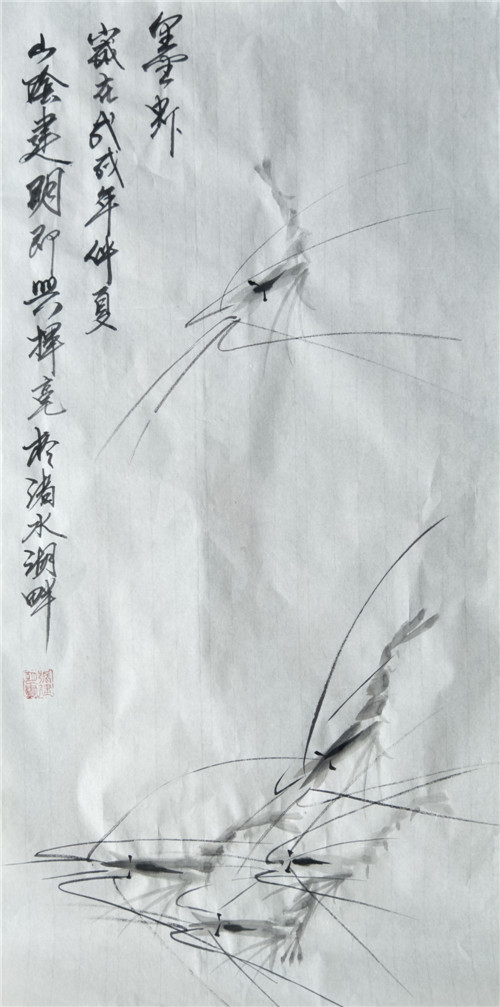 墨虾
岁在戊戌年仲夏
山阴建明即兴挥亳於渚水湖畔